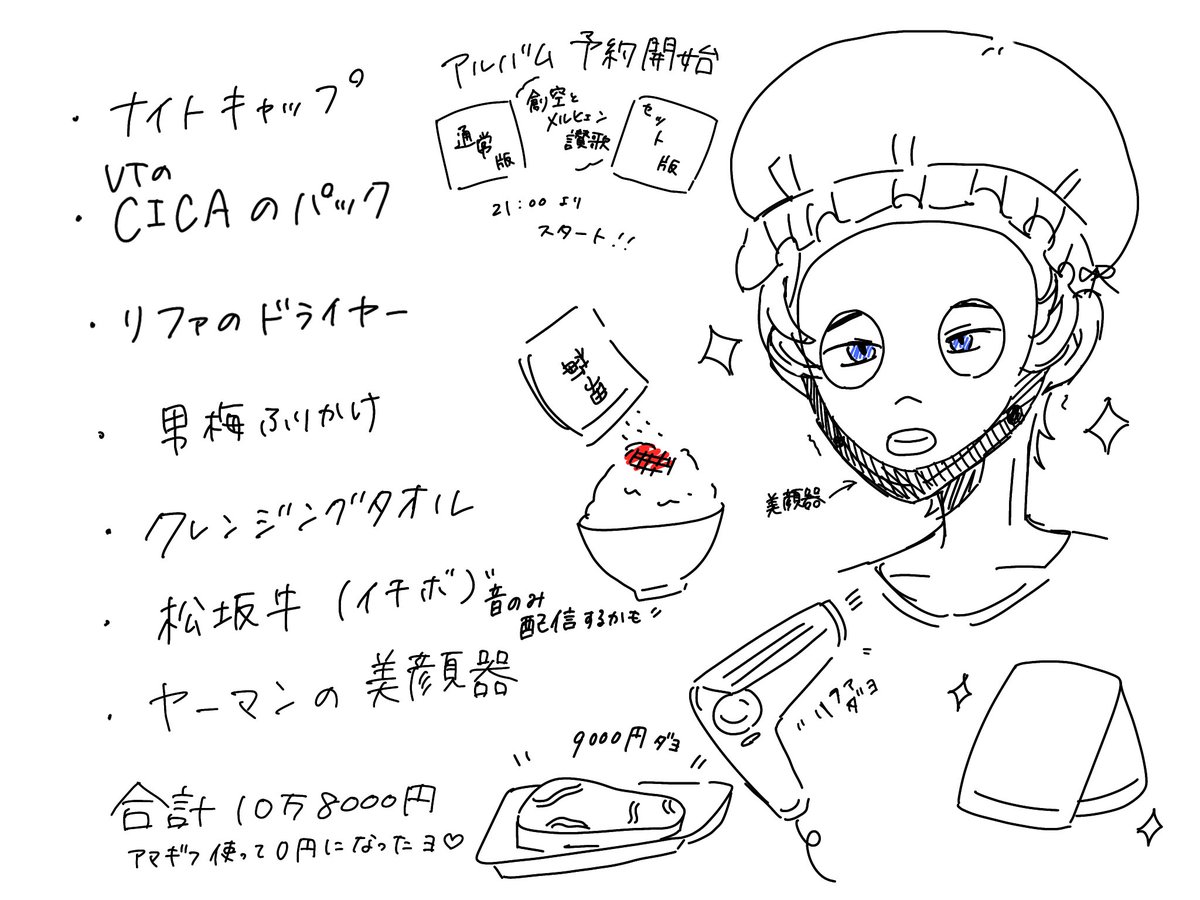 ・ナイトキャップ
VTの
・CICAのパック
・リファのドライヤー
・男梅ふりかけ
・クレンジングタオル
・松坂牛(イチボ)
・ヤーマンの美顔器
合計10万8000円
アマギフ使って0円になったヨ♡
アルバム予約開始
通常版
創空と
メルヒェン
讃歌
セット版
21:00より
スタート!!
男梅
"音のみ
配信するかも"
美顔器
"リファ
ダヨ"
9000円ダヨ